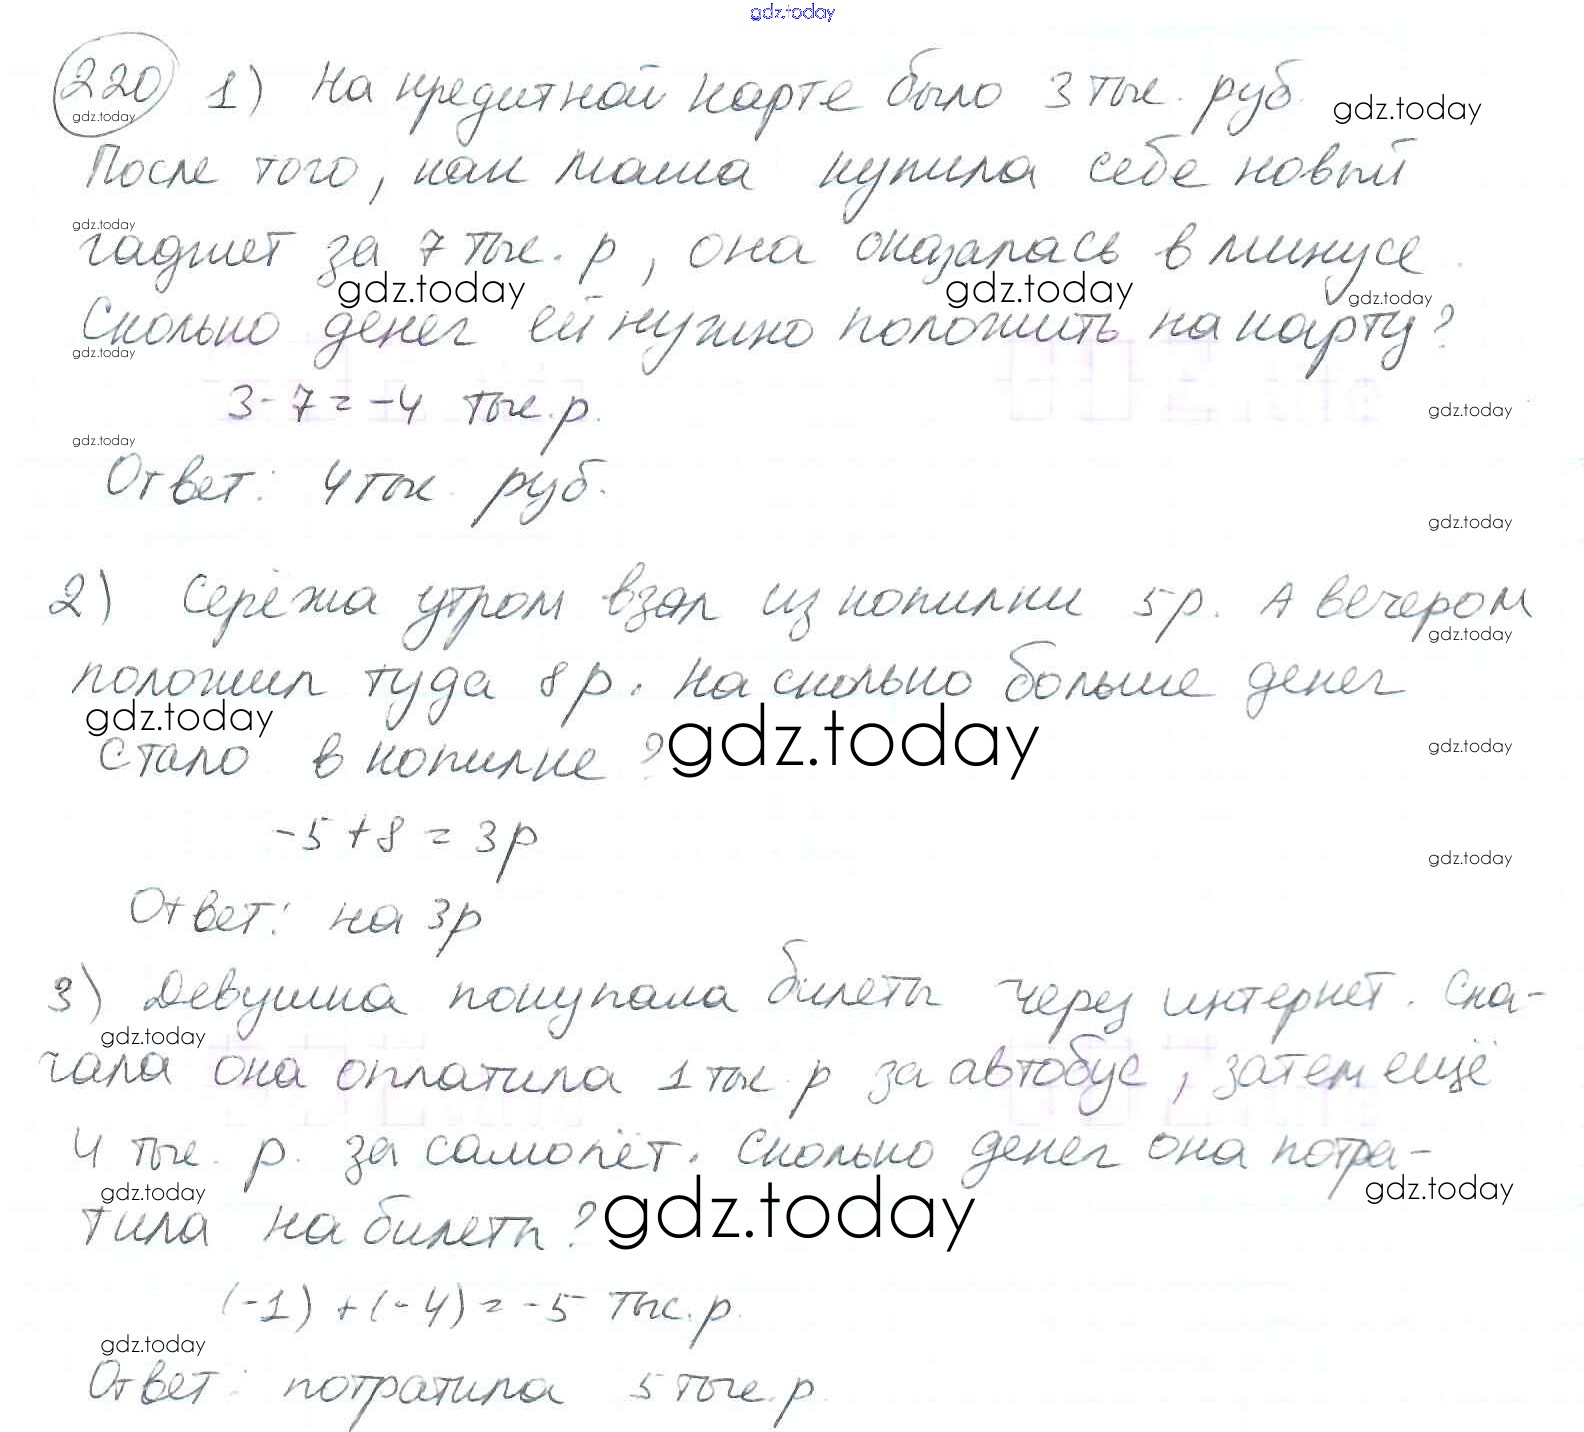 gdz.today
220 1) На кредитной карте было 3 тыс. руб.
gdz.today gdz.today
После того, как мама купила себе новый
gdz.today
гаджет за 7 тыс. р, она оказалась в минусе.
gdz.today gdz.today gdz.today
Сколько денег ей нужно положить на карту?
gdz.today
3-7=-4 тыс. р.
gdz.today
gdz.today
Ответ: 4 тыс. руб.
gdz.today
2) Серёжа утром взял из копилки 5р. А вечером
gdz.today
положил туда 8р. На сколько больше денег
gdz.today
стало в копилке? gdz.today
gdz.today
-5+8=3р
gdz.today
Ответ: на 3р
3) Девушка покупала билеты через интернет. Сна-
gdz.today
чала она оплатила 1 тыс р за автобус, затем ещё
4 тыс. р. за самолёт. Сколько денег она потра-
gdz.today gdz.today
тила на билеты? gdz.today
(-1)+(-4)=-5 тыс. р.
gdz.today
Ответ: потратила 5 тыс. р.